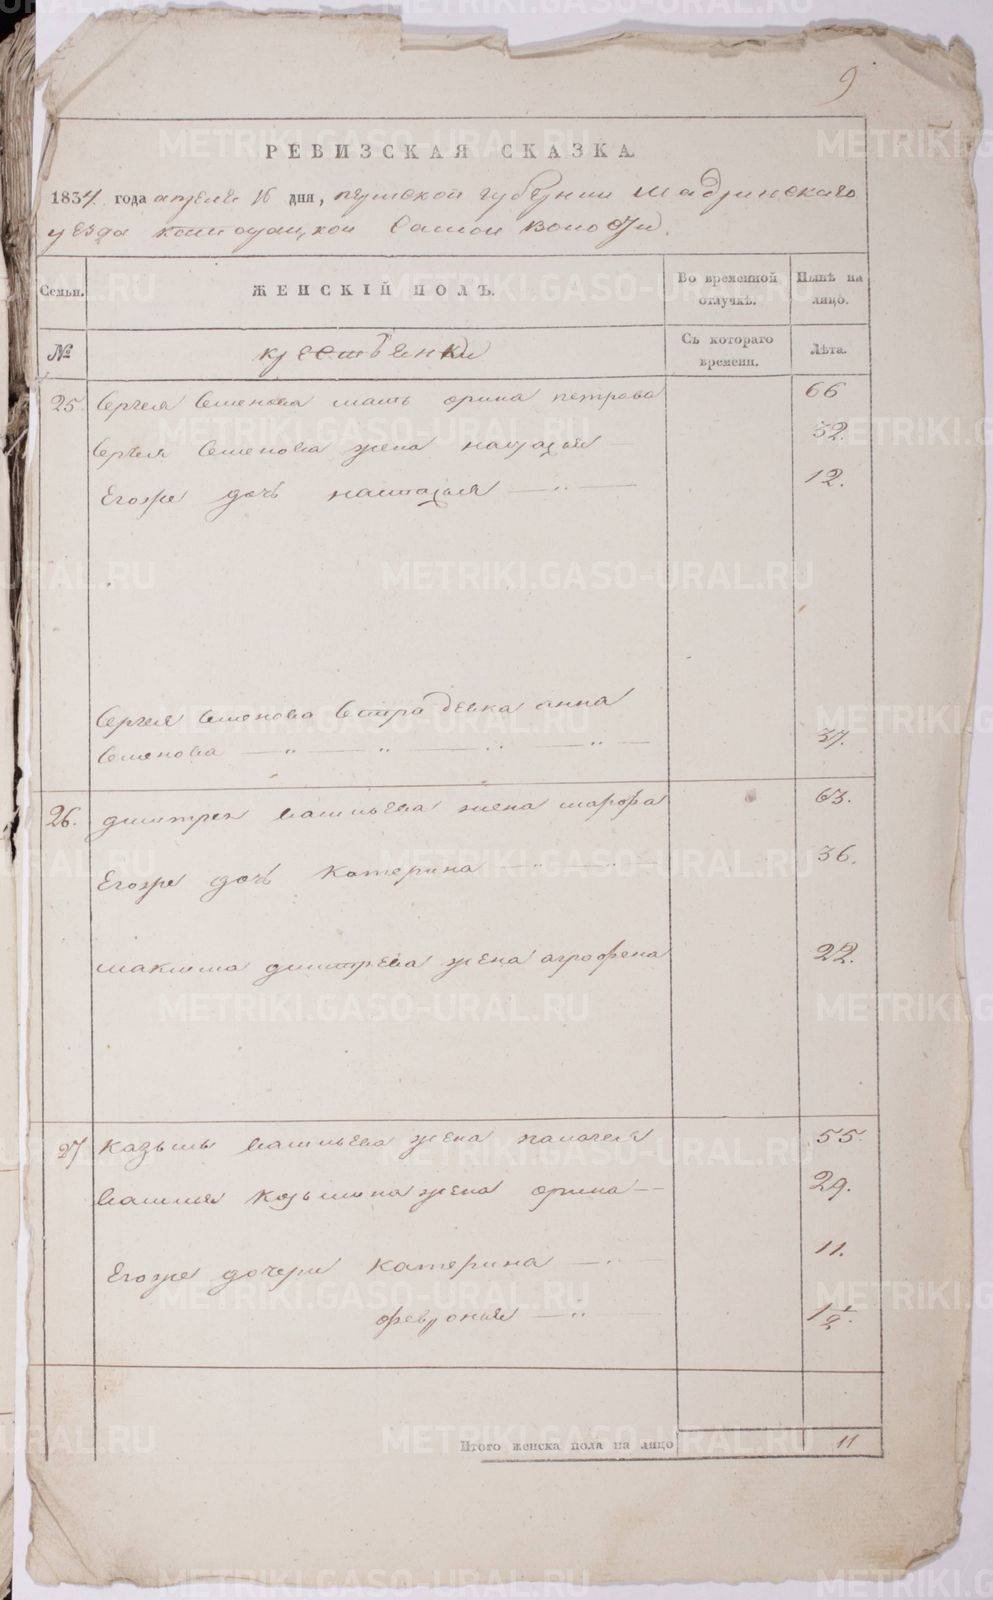 9
РЕВИЗСКАЯ СКАЗКА
1834 года апреля 16 дня, пермской губернии Шадринскаго
уезда самой волости.
Семьи.
ЖЕНСКІЙ ПОЛЪ.
Во временной отлучкѣ.
Нынѣ на лицо.
№
крестьянки
Съ котораго времени.
Лѣта.
25. Сергея Семенова мать орина петрова 66
Сергея Семенова жена настасья 32.
Егоже дочь настасья 12.
Сергея Семенова Сестра девка анна
Семенова 37.
26. дмитрея васильева жена марфа 63.
Егоже дочь Катерина 36.
максима дмитрева жена агрофена 22.
27 Казьмы васильева жена палагея 55.
василья Козьмина жена орина 29.
Егоже дочери Катерина 11.
феврония 1½.
Итого женска пола на лицо 11
METRIKI.GASO-URAL.RU